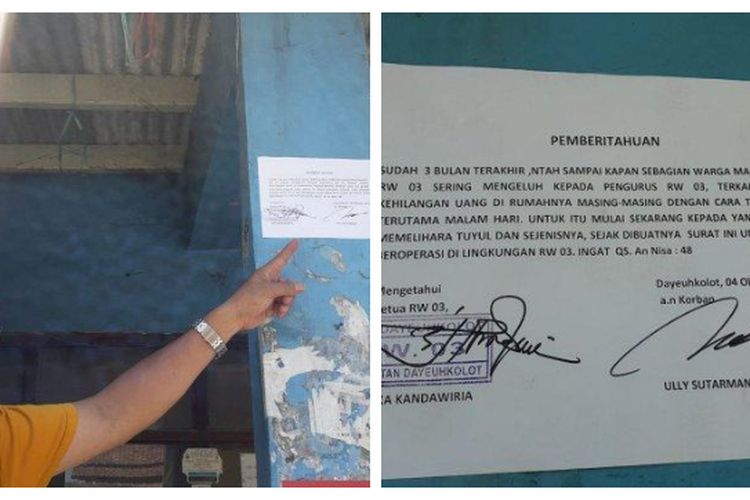 PEMBERITAHUAN
SUDAH 3 BULAN TERAKHIR ,NTAH SAMPAI KAPAN SEBAGIAN WARGA MA
RW 03 SERING MENGELUH KEPADA PENGURUS RW 03, TERKA
KEHILANGAN UANG DI RUMAHNYA MASING-MASING DENGAN CARA T
TERUTAMA MALAM HARI. UNTUK ITU MULAI SEKARANG KEPADA YAN
MEMELIHARA TUYUL DAN SEJENISNYA, SEJAK DIBUATNYA SURAT INI UN
BEROPERASI DI LINGKUNGAN RW 03. INGAT QS. An Nisa : 48
Mengetahui
Ketua RW 03,
Dayeuhkolot, 04 Ok
a.n Korban
DAYEUHKOLOT
W. 03
TAN DAYEUHKOLOT
KA KANDAWIRIA
ULLY SUTARMAN